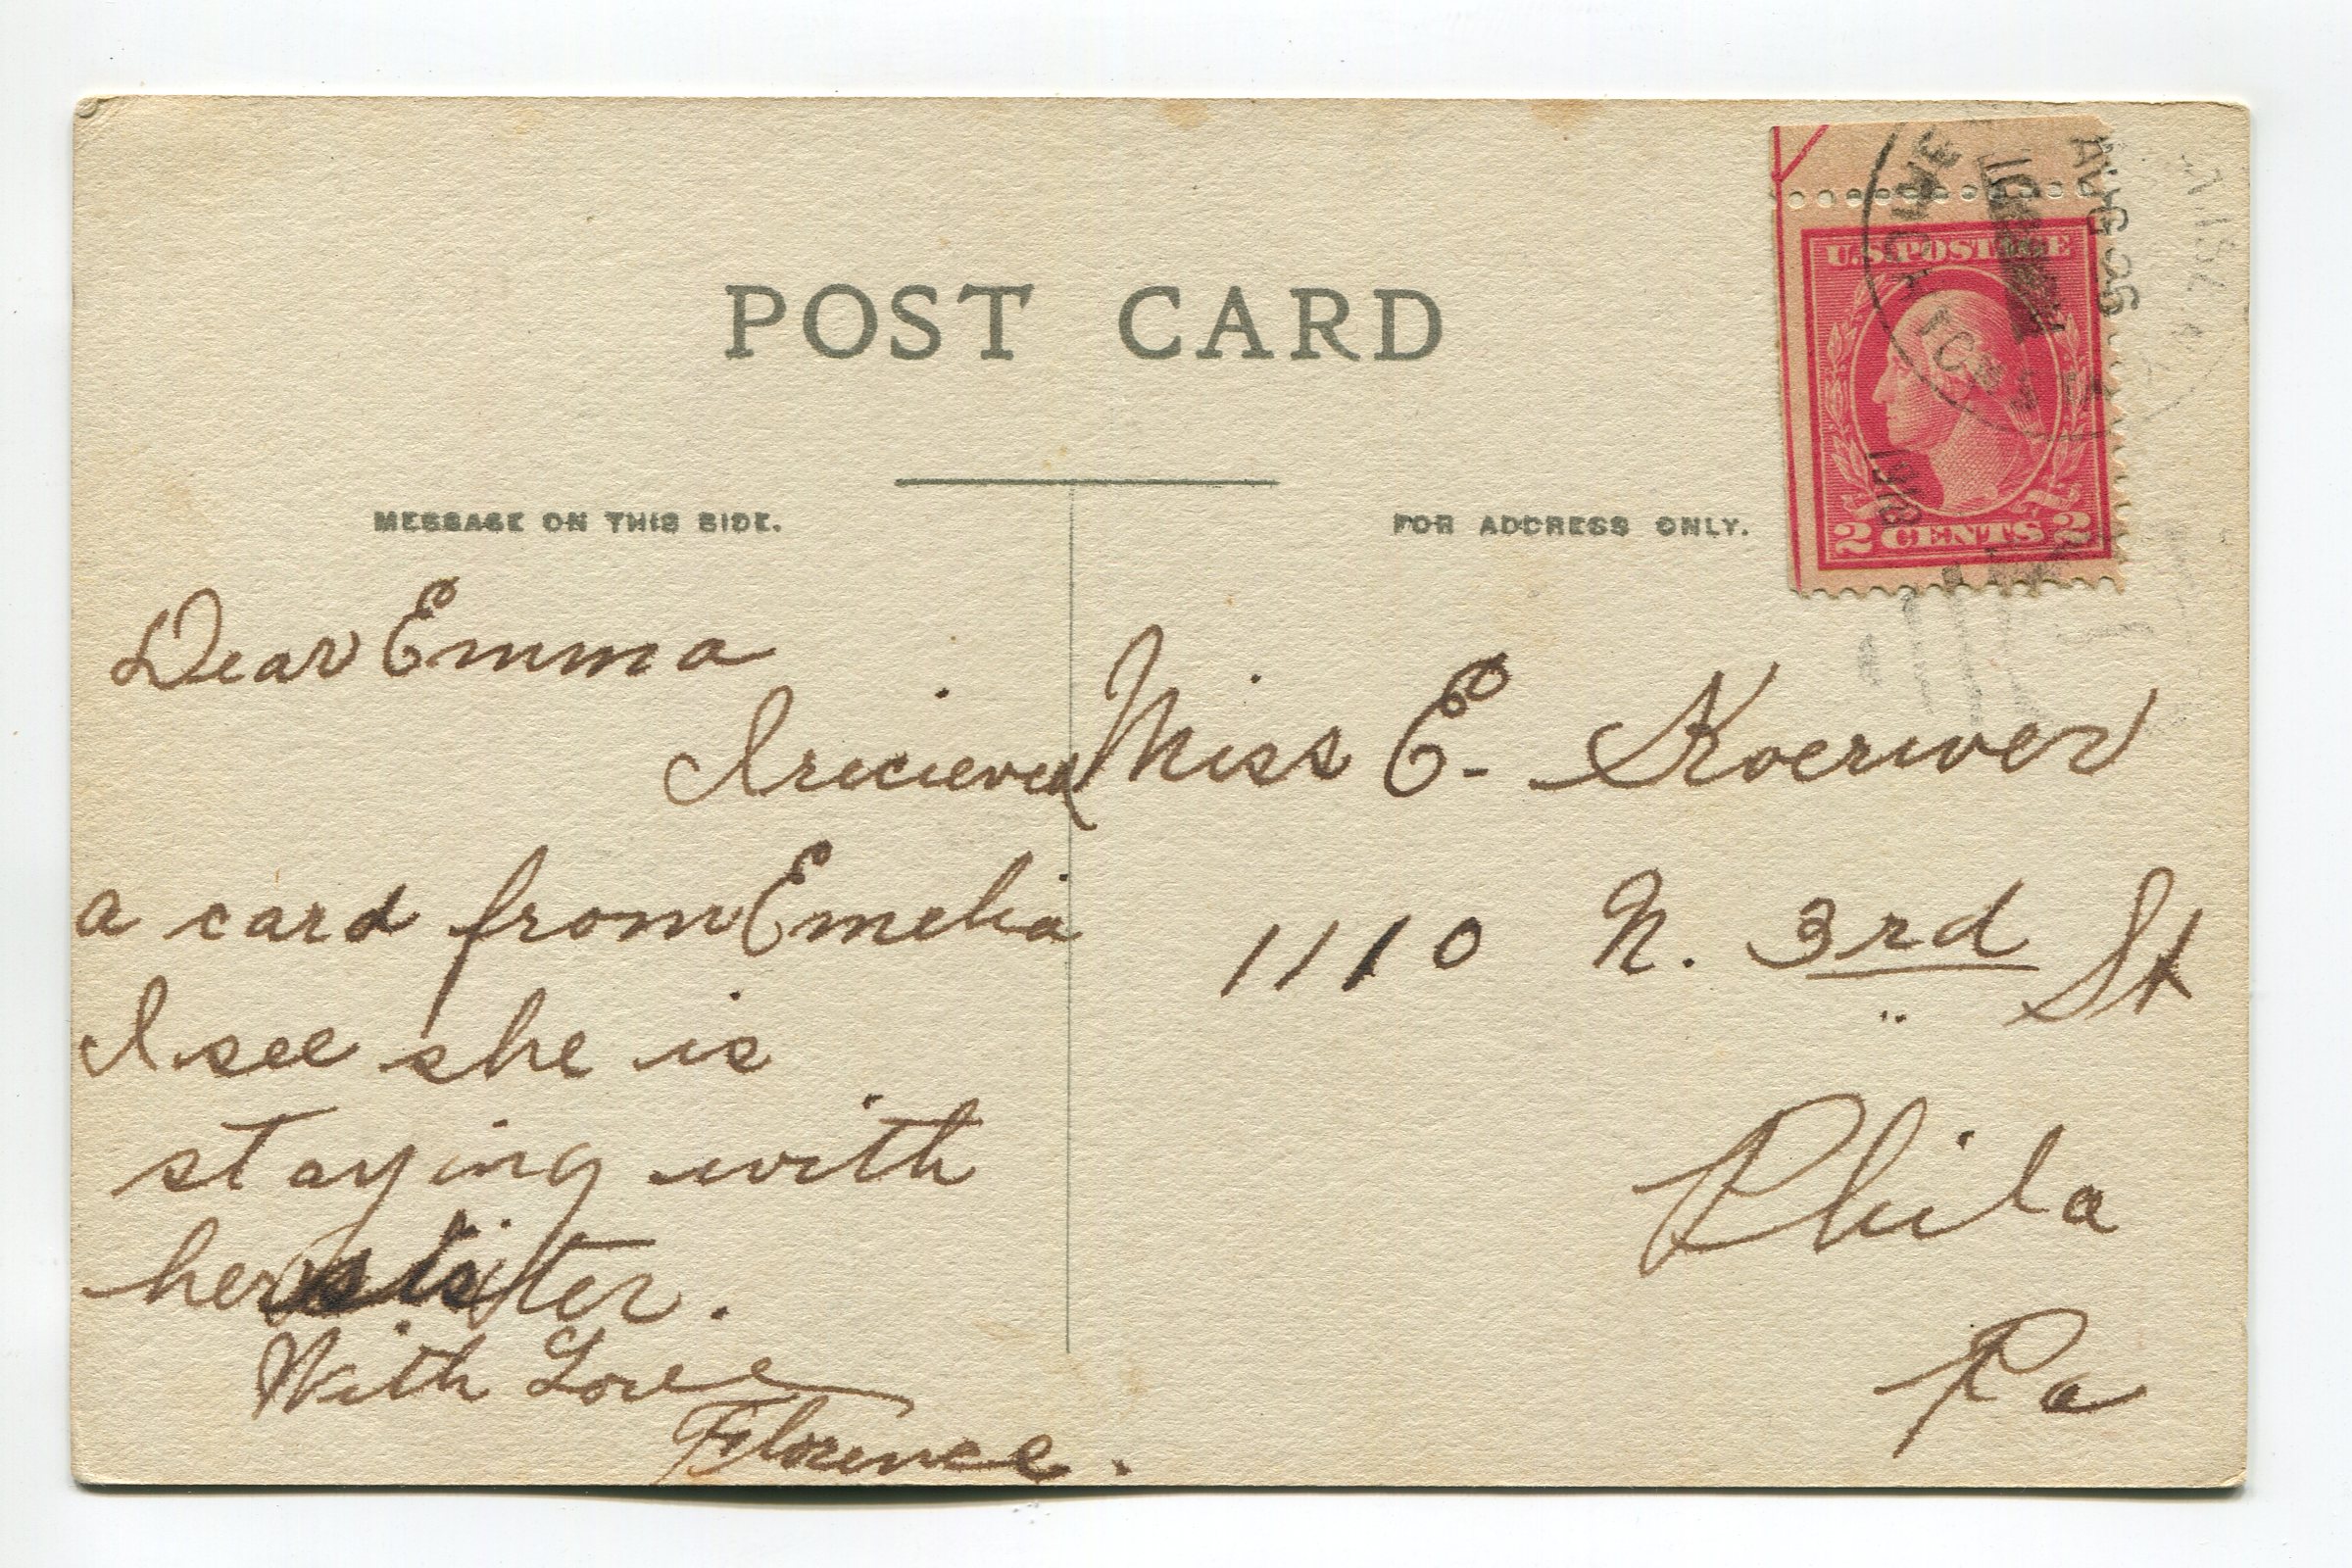 POST CARD
MESSAGE ON THIS SIDE.
FOR ADDRESS ONLY.
U.S. POSTAGE
2 CENTS 2
AUG 26
1918
Dear Emma
I recieved
a card from Emelia
I see she is
staying with
her sister.
With Love
Florence.
Miss E. Koerwer
1110 N. 3rd St
Phila
Pa